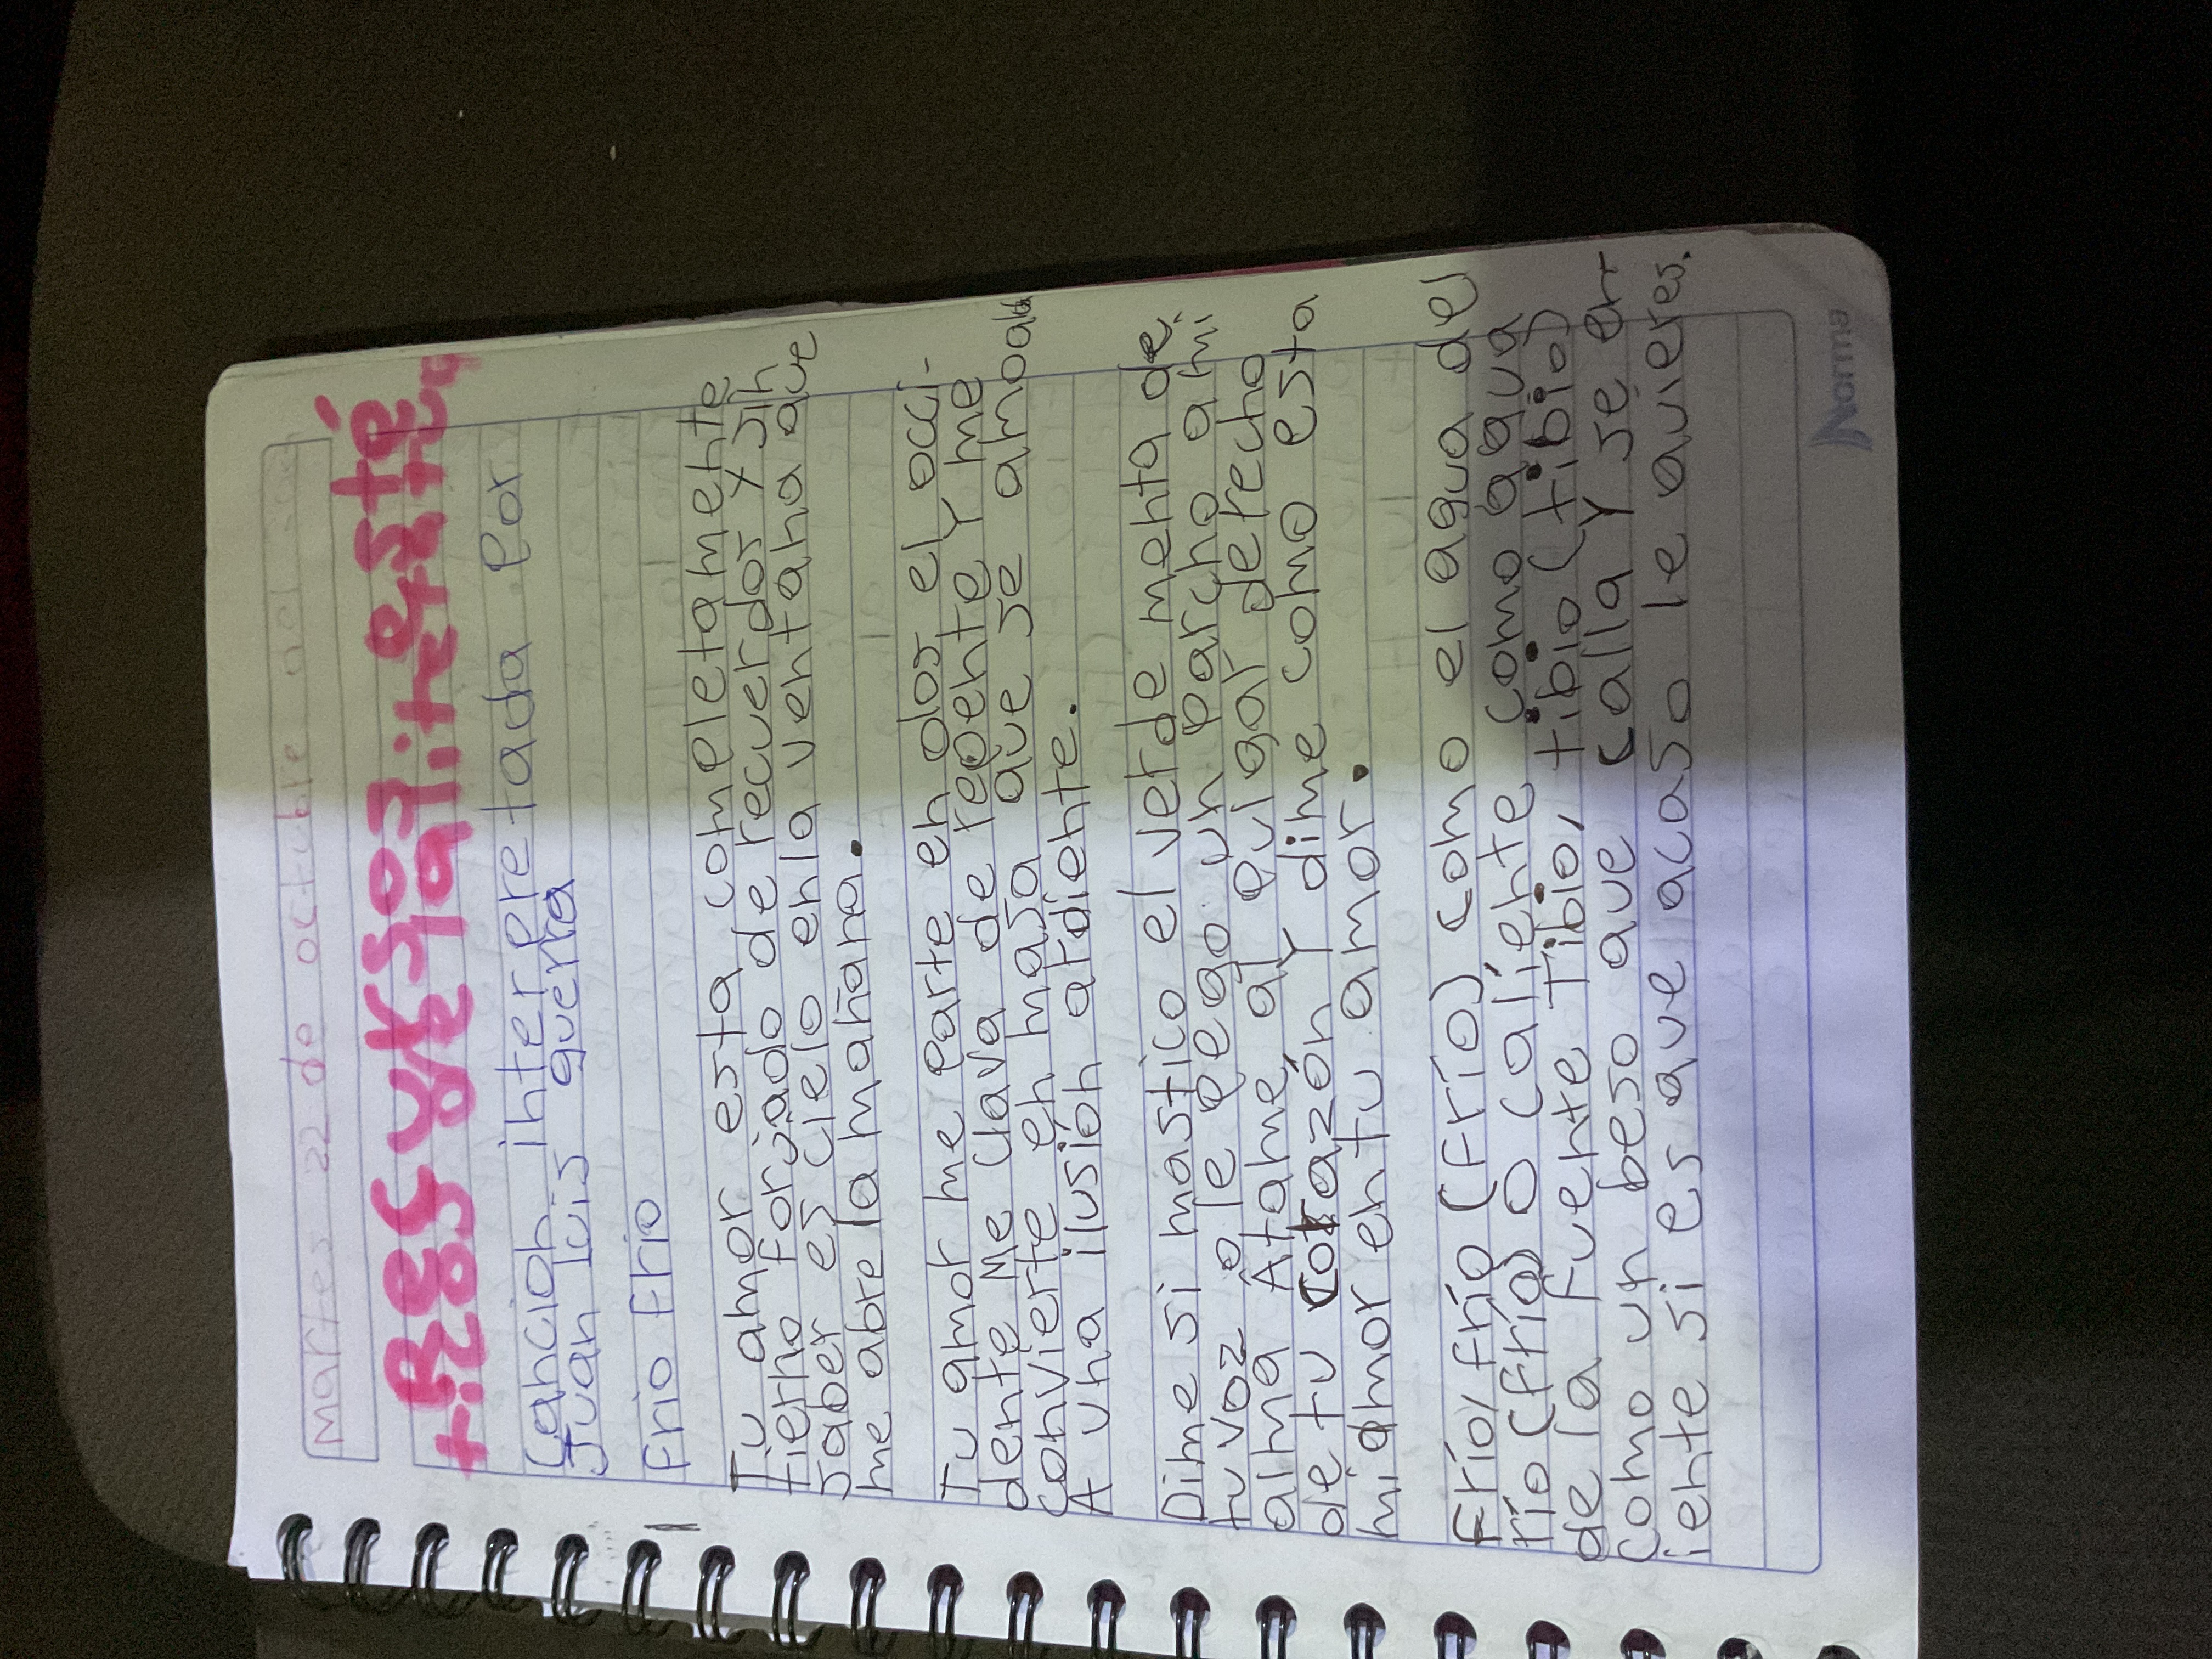 Martes 22 de octubre del
Recursos esté
ticos
Canción interpretada por
Juan luis guerra
Frio Frio
Tu amor esta completamente
tierno forjado de recuerdos y sin
saber es cielo enla ventana que
me abre la mañana.
Tu amor me parte en dos el occi-
dente Me clava de repente y me
convierte en masa que se amolda
A una ilusión ardiente.
Dime si mastico el verde menta de
tu voz o le pego un parcho a mi
alma Átame al pulgar derecho
de tu corazón y dime como esta
mi amor en tu amor.
Frío, frío (frío) como el agua del
río (frío) O caliente como agua
de la fuente Tibio, tibio (tibio)
como un beso que calla y se en
iente si es que acaso le quieres.
Norma